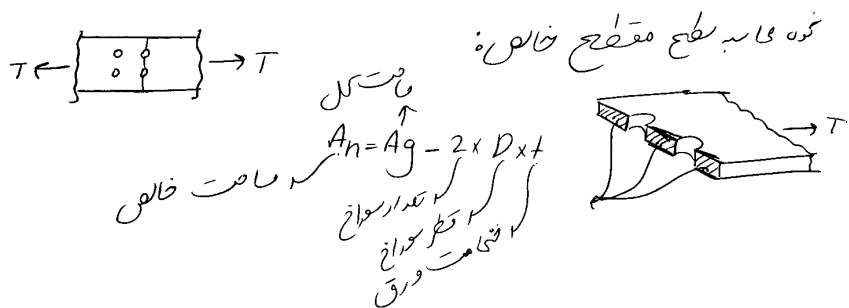 نحوه محاسبه سطح مقطع خالص:
T
T
مساحت کل
T
An = Ag - 2 × D × t
مساحت خالص
تعداد سوراخ
قطر سوراخ
ضخامت ورق